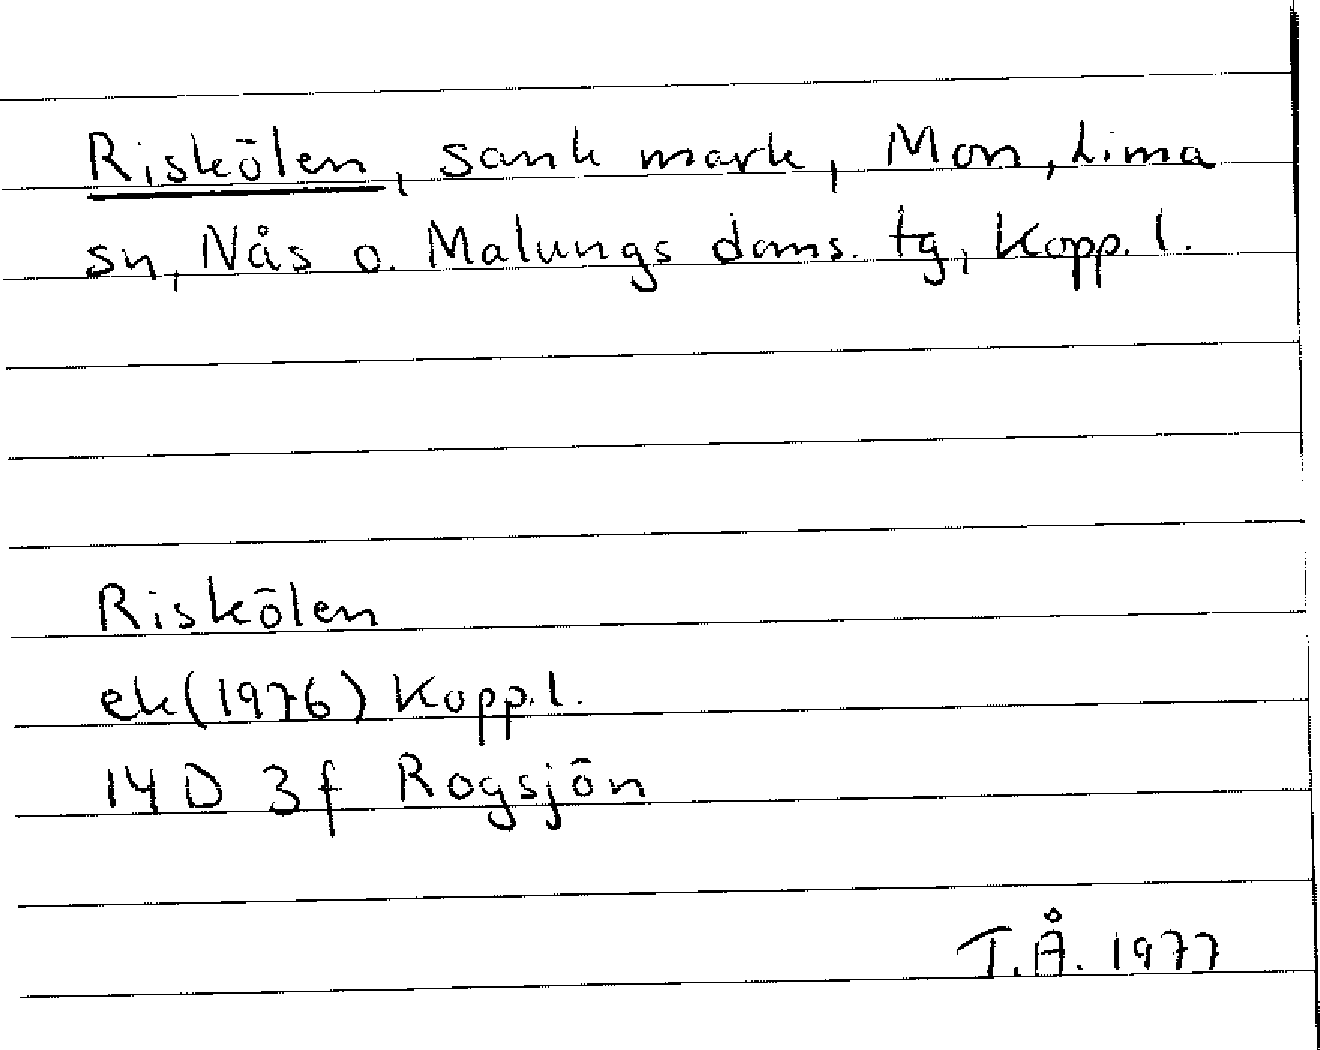 Riskölen, sank mark, Mon, Lima
sn, Nås o. Malungs doms. tg, Kopp. l.
Riskölen
ek (1976) Kopp. l.
14 D 3 f Rogsjön
T.Å. 1977